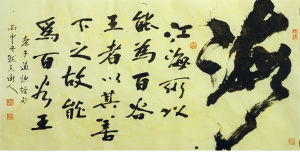 江海所以
能為百谷
王者以其善
下之故能
為百谷王
老子道德經句